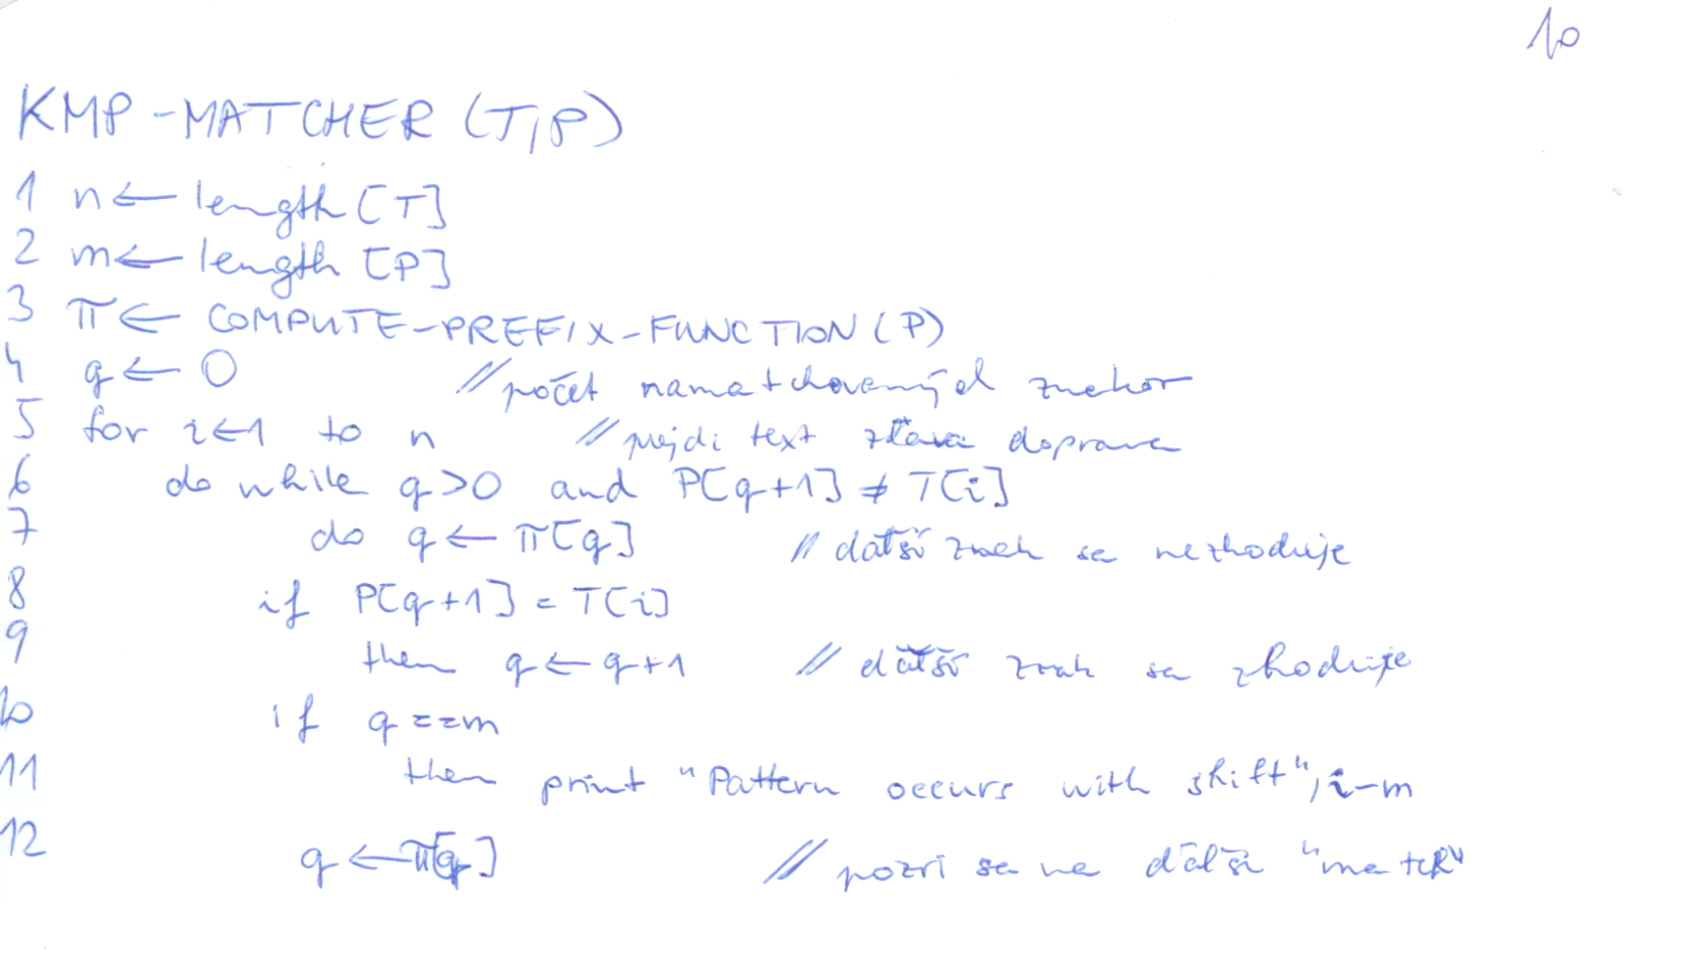 10
KMP-MATCHER (T,P)
1 n ← length [T]
2 m ← length [P]
3 π ← COMPUTE-PREFIX-FUNCTION (P)
4 q ← 0 // počet namatchovaných znakov
5 for i ← 1 to n // prejdi text zľava doprava
6 do while q > 0 and P[q+1] ≠ T[i]
7 do q ← π[q] // ďalší znak sa nezhoduje
8 if P[q+1] = T[i]
9 then q ← q+1 // ďalší znak sa zhoduje
10 if q == m
11 then print "Pattern occurs with shift", i-m
12 q ← π[q] // pozri sa na ďalší "match"